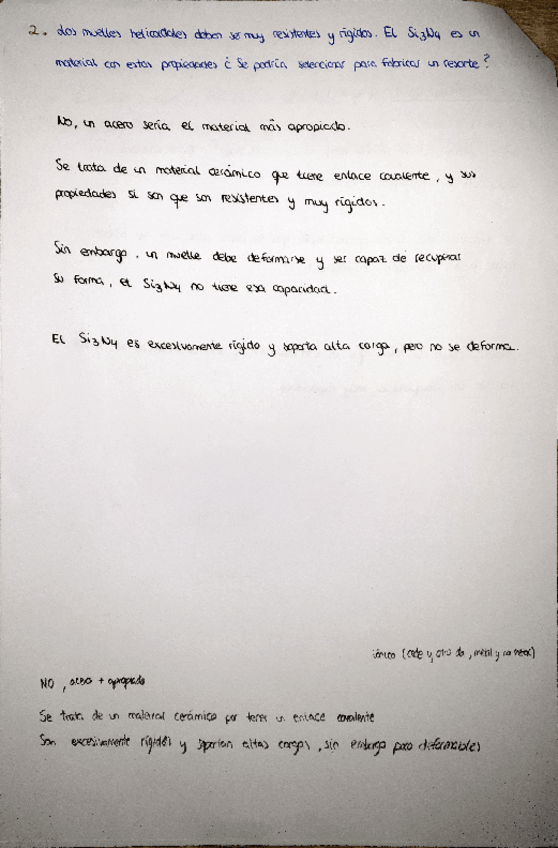 2. Los muelles helicoidales deben ser muy resistentes y rígidos. El Si3N4 es un
material con estas propiedades ¿ Se podría seleccionar para fabricar un resorte ?
No, un acero sería el material más apropiado.
Se trata de un material cerámico que tiene enlace covalente, y sus
propiedades si son que son resistentes y muy rígidos.
Sin embargo, un muelle debe deformarse y ser capaz de recuperar
su forma, el Si3N4 no tiene esa capacidad.
El Si3N4 es excesivamente rígido y soporta alta carga, pero no se deforma.
iónico (cede y otro da, metal y no metal)
NO, acero + apropiado
Se trata de un material cerámico por tener un enlace covalente
Son excesivamente rígidos y soportan altas cargas, sin embargo poco deformables